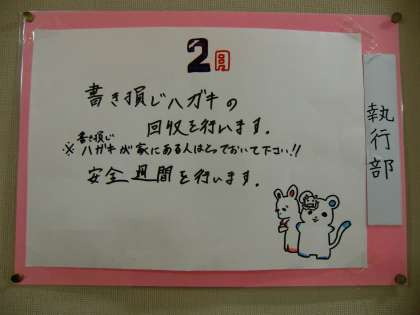 2月
書き損じハガキの
回収を行います。
書き損じ
※ハガキが家にある人はとっておいて下さい!!
安全週間を行います。
執行部